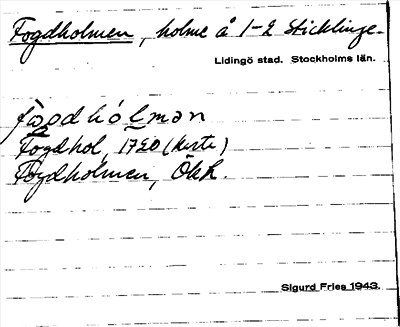 Fogdholmen, holme å 1-2 Sticklinge.
Lidingö stad. Stockholms län.
fogdhólmən
Fogdhol, 1720 (karta)
Fogdholmen, Ökk.
Sigurd Fries 1943.